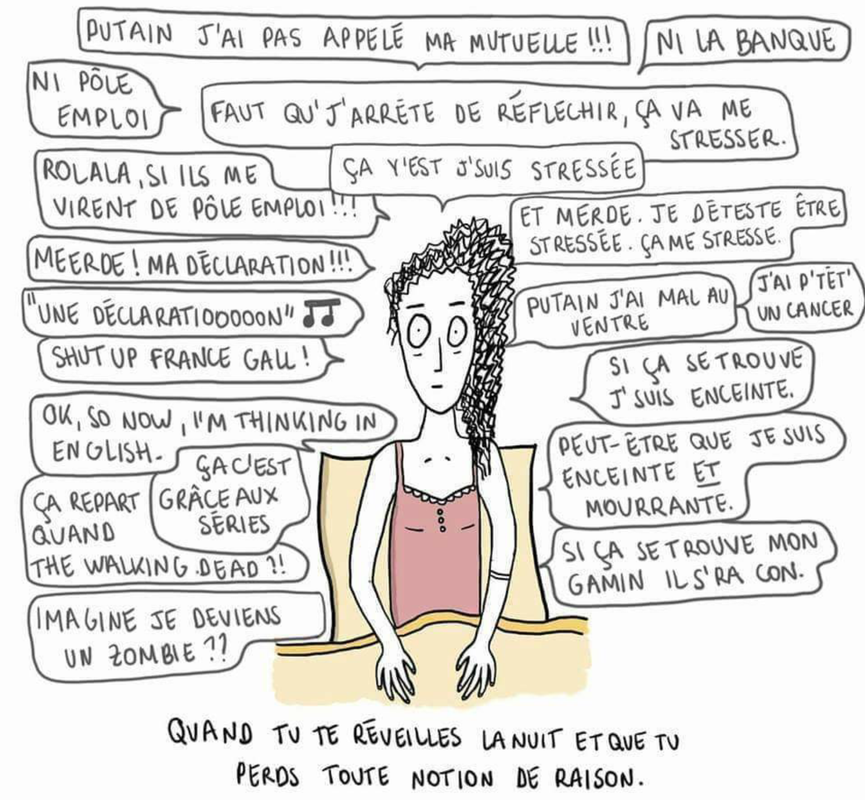 PUTAIN J'AI PAS APPELÉ MA MUTUELLE !!!
NI LA BANQUE
NI PÔLE
EMPLOI
FAUT QU'J'ARRÊTE DE RÉFLECHIR, ÇA VA ME
STRESSER.
ROLALA, SI ILS ME
VIRENT DE PÔLE EMPLOI !!!
ÇA Y'EST J'SUIS STRESSÉE
ET MERDE. JE DÉTESTE ÊTRE
STRESSÉE. ÇA ME STRESSE.
MEERDE ! MA DÉCLARATION !!!
"UNE DÉCLARATIOOOOON" 🎵
SHUT UP FRANCE GALL !
PUTAIN J'AI MAL AU
VENTRE
J'AI P'TÊT'
UN CANCER
SI ÇA SE TROUVE
J'SUIS ENCEINTE.
OK, SO NOW, I'M THINKING IN
ENGLISH.
ÇA C'EST
GRÂCE AUX
SÉRIES
PEUT-ÊTRE QUE JE SUIS
ENCEINTE ET
MOURRANTE.
ÇA REPART
QUAND
THE WALKING DEAD ?!
SI ÇA SE TROUVE MON
GAMIN IL S'RA CON.
IMAGINE JE DEVIENS
UN ZOMBIE ??
QUAND TU TE RÉVEILLES LA NUIT ET QUE TU
PERDS TOUTE NOTION DE RAISON.